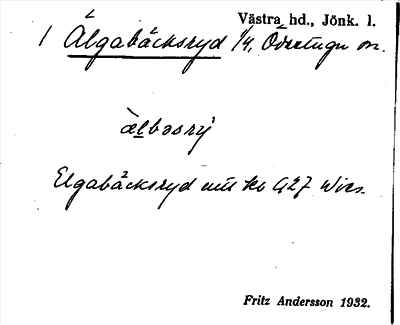 Västra hd., Jönk. l.
1 Älgabäcksryd 1/4, Ödestugu sn.
àlbəsrý
Elgabäcksryd utt kb G27 Wies.
Fritz Andersson 1932.